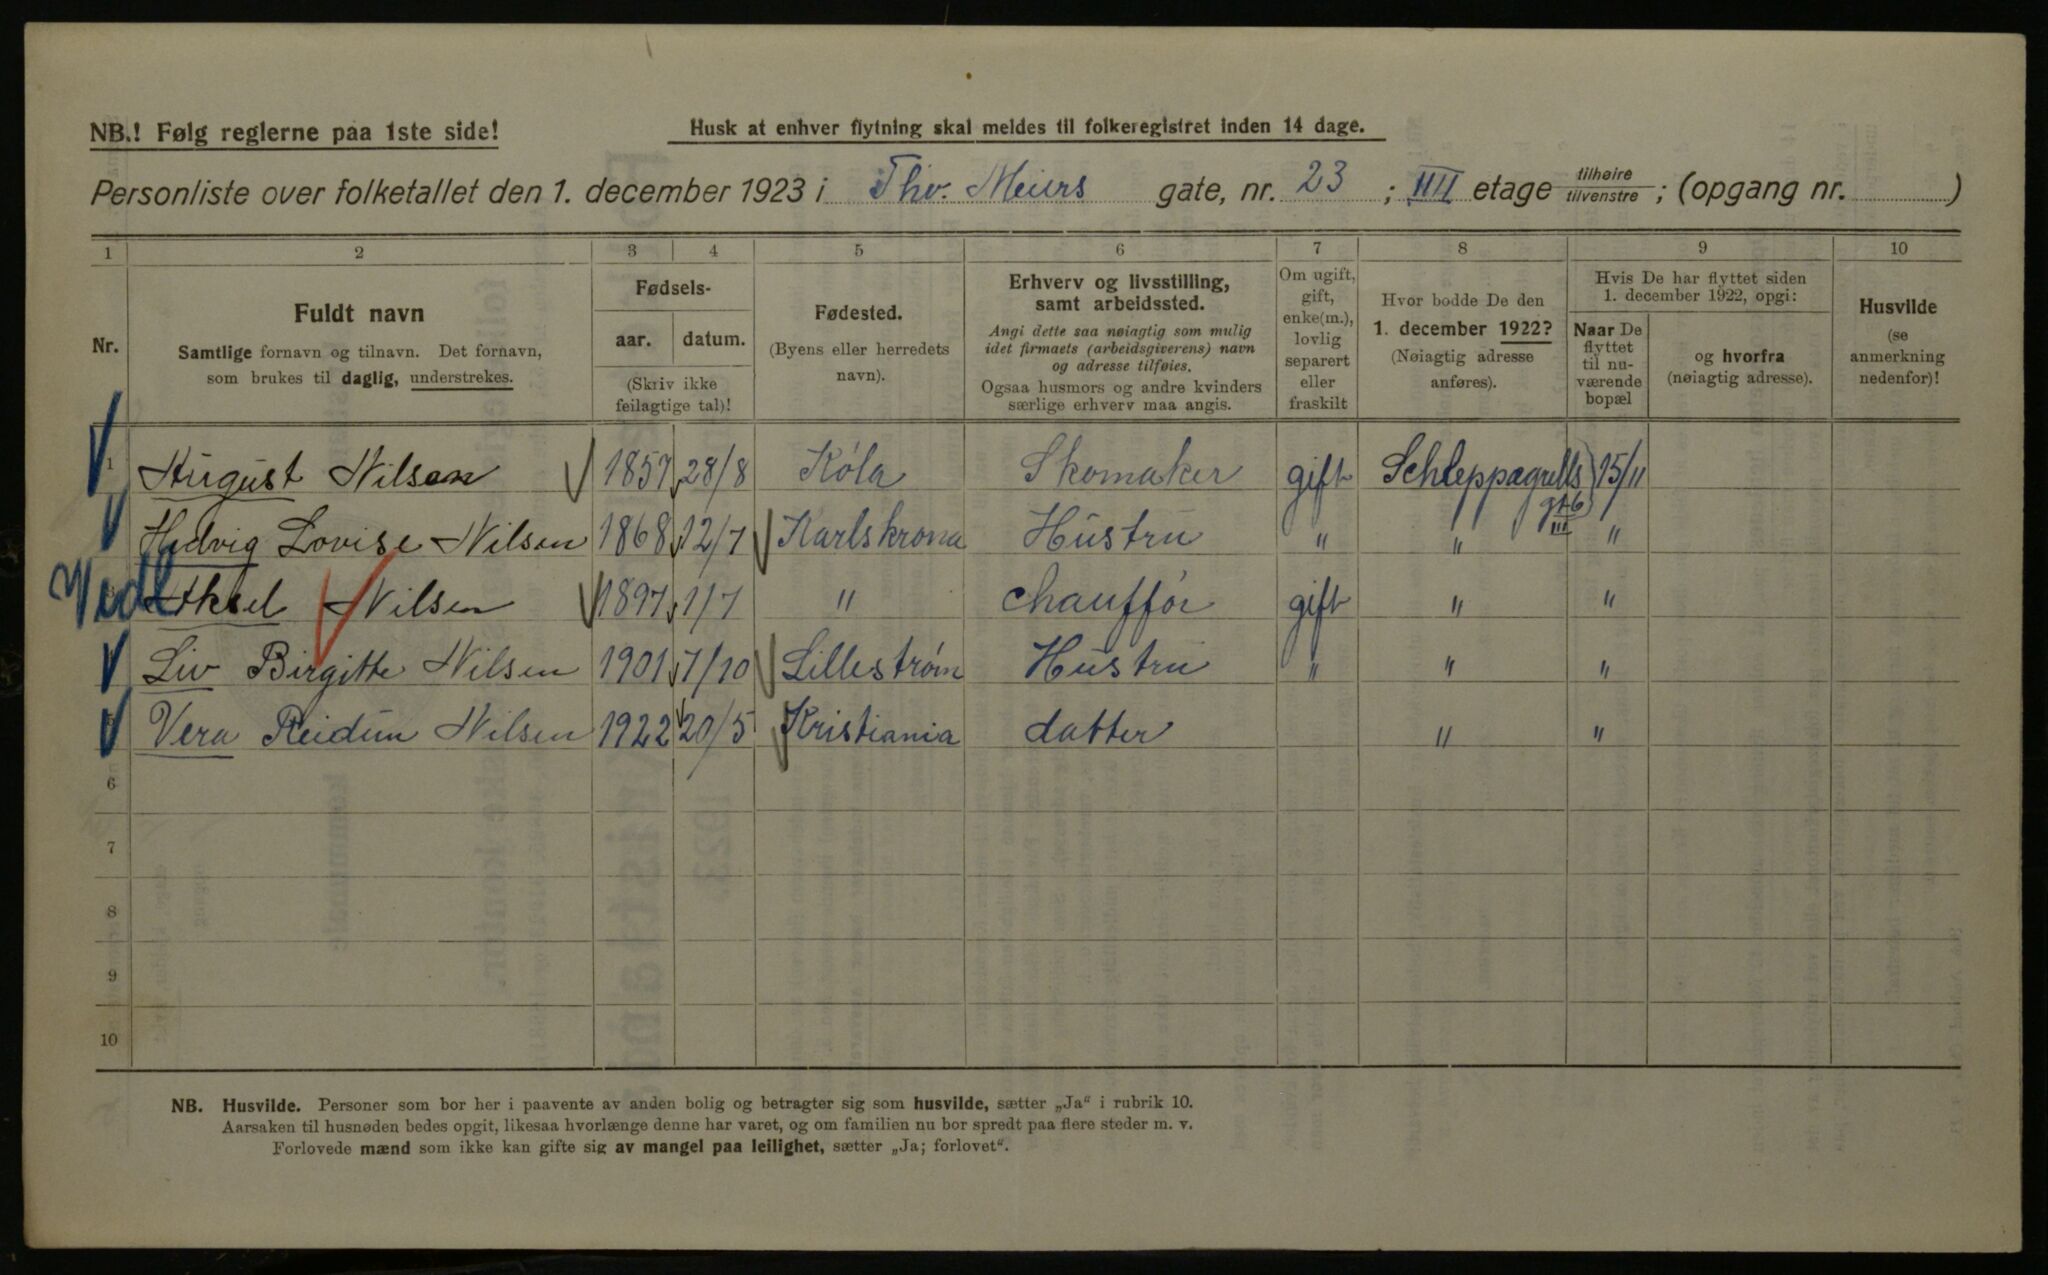 NB.! Følg reglerne paa 1ste side!
Husk at enhver flytning skal meldes til folkeregistret inden 14 dage.
Personliste over folketallet den 1. december 1923 i Thv. Meiers gate, nr. 23 ; IIII etage tilhøire tilvenstre ; (opgang nr. )
1 2 3 4 5 6 7 8 9 10
Nr.
Fuldt navn
Samtlige fornavn og tilnavn. Det fornavn,
som brukes til daglig, understrekes.
Fødsels-
aar. datum.
(Skriv ikke
feilagtige tal)!
Fødested.
(Byens eller herredets
navn).
Erhverv og livsstilling,
samt arbeidssted.
Angi dette saa nøiagtig som mulig
idet firmaets (arbeidsgiverens) navn
og adresse tilføies.
Ogsaa husmors og andre kvinders
særlige erhverv maa angis.
Om ugift,
gift,
enke(m.),
lovlig
separert
eller
fraskilt
Hvor bodde De den
1. december 1922?
(Nøiagtig adresse
anføres).
Hvis De har flyttet siden
1. december 1922, opgi:
Naar De
flyttet
til nu-
værende
bopæl
og hvorfra
(nøiagtig adresse).
Husvilde
(se
anmerkning
nedenfor)!
1 August Nilsen 1857 28/8 Køla Skomaker gift Schleppegrells 15/11
gt 6
III
Hedvig Lovise Nilsen 1868 12/7 Karlskrona Hustru " " "
Vidt
Aksel Nilsen 1897 1/7 " Chauffør gift " "
Liv Birgitte Nilsen 1901 7/10 Lillestrøm Hustru " " "
Vera Reidun Nilsen 1922 20/5 Kristiania datter " "
6
7
8
9
10
NB. Husvilde. Personer som bor her i paavente av anden bolig og betragter sig som husvilde, sætter „Ja“ i rubrik 10.
Aarsaken til husnøden bedes opgit, likesaa hvorlænge denne har varet, og om familien nu bor spredt paa flere steder m. v.
Forlovede mænd som ikke kan gifte sig av mangel paa leilighet, sætter „Ja; forlovet“.